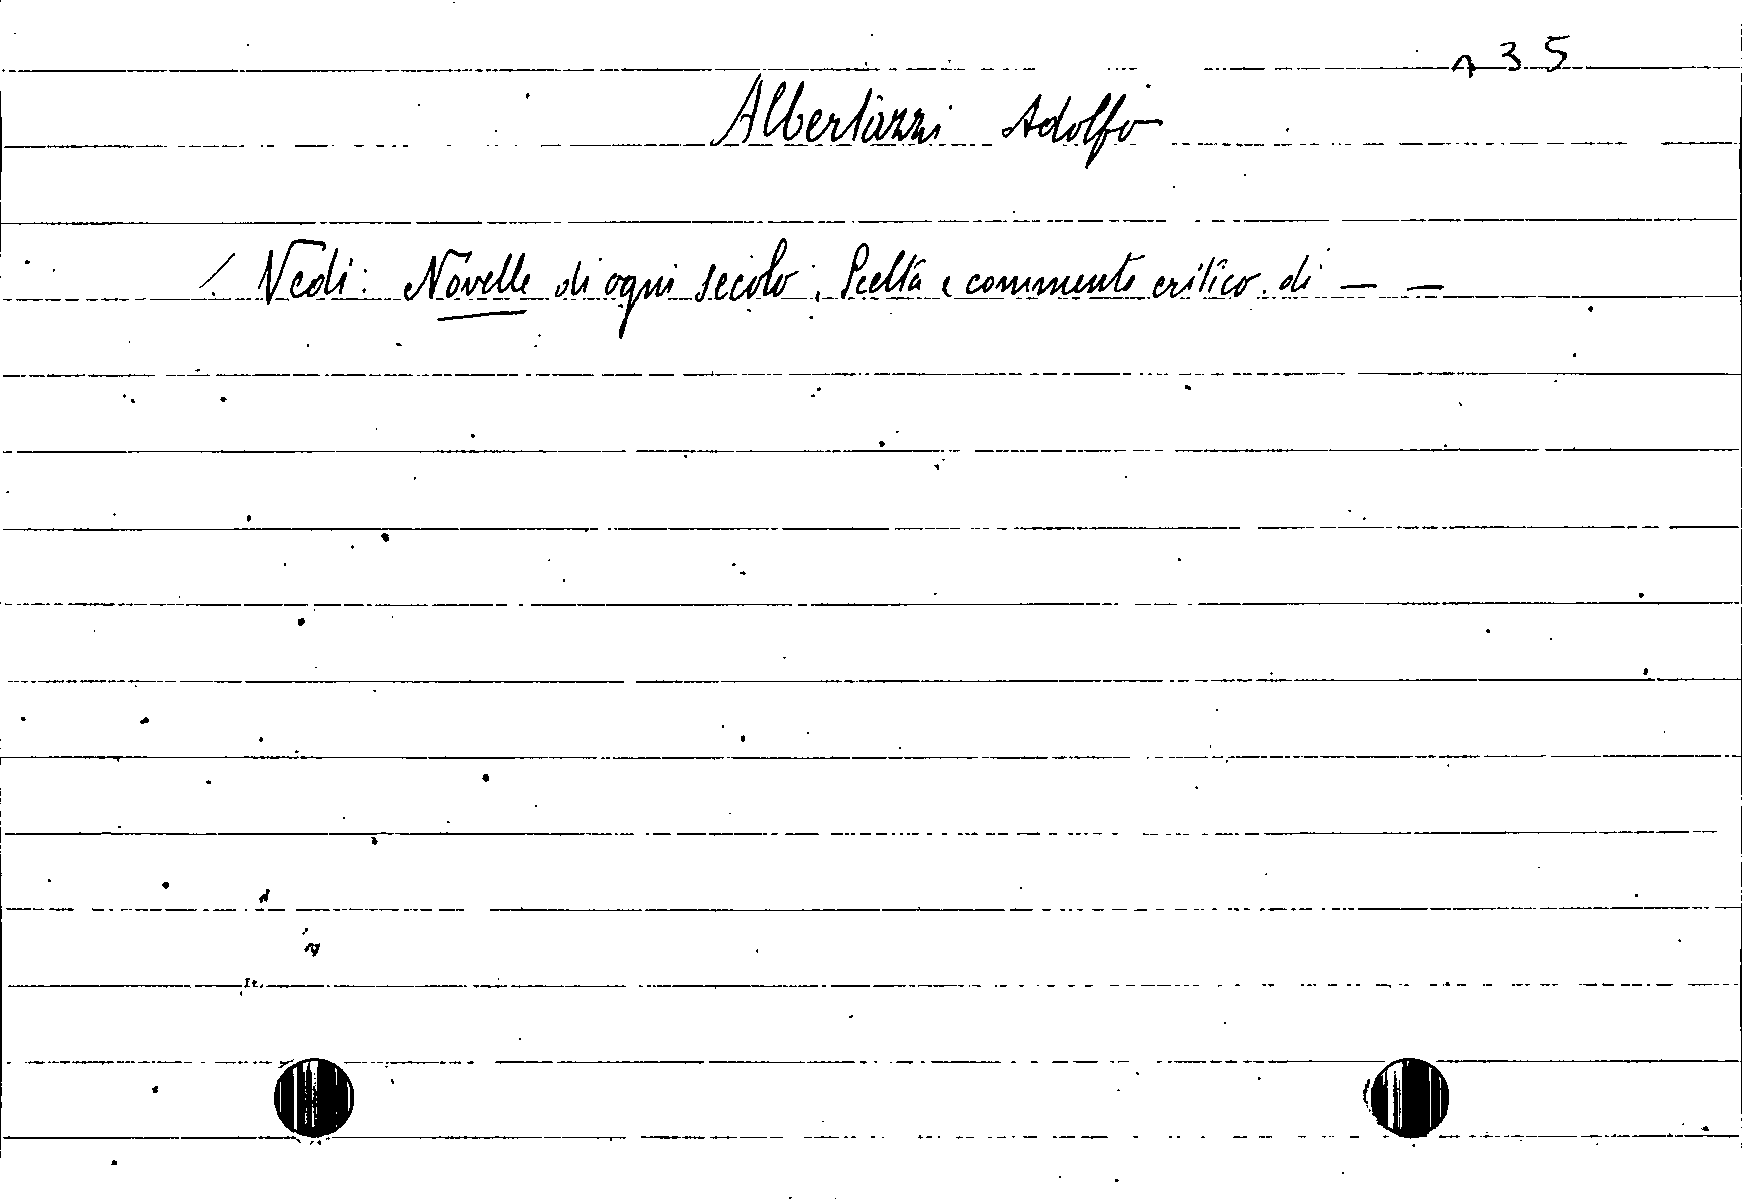 135
Albertazzi Adolfo
/. Vedi: Novelle di ogni secolo. Scelta e commento critico di — —